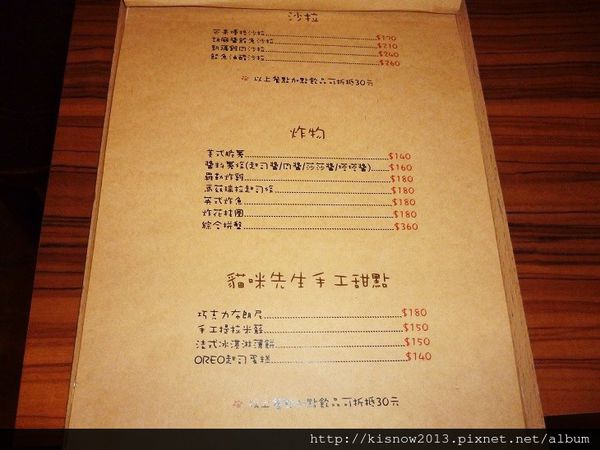 沙拉
芒果棒棒沙拉 $170
胡麻醬鮭魚沙拉 $210
凱薩雞肉沙拉 $240
鮭魚油醋沙拉 $260
以上餐點加點飲品可折抵30元
炸物
美式脆薯 $140
醬料薯條(起司醬/肉醬/莎莎醬/塔塔醬) $160
$180
馬茲瑞拉起司條 $180
英式炸魚 $180
炸花枝圈 $180
綜合拼盤 $360
貓咪先生手工甜點
巧克力布朗尼 $180
手工提拉米蘇 $150
法式冰淇淋薄餅 $150
OREO起司蛋糕 $140
以上餐點加點飲品可折抵30元
http://kisnow2013.pixnet.net/album